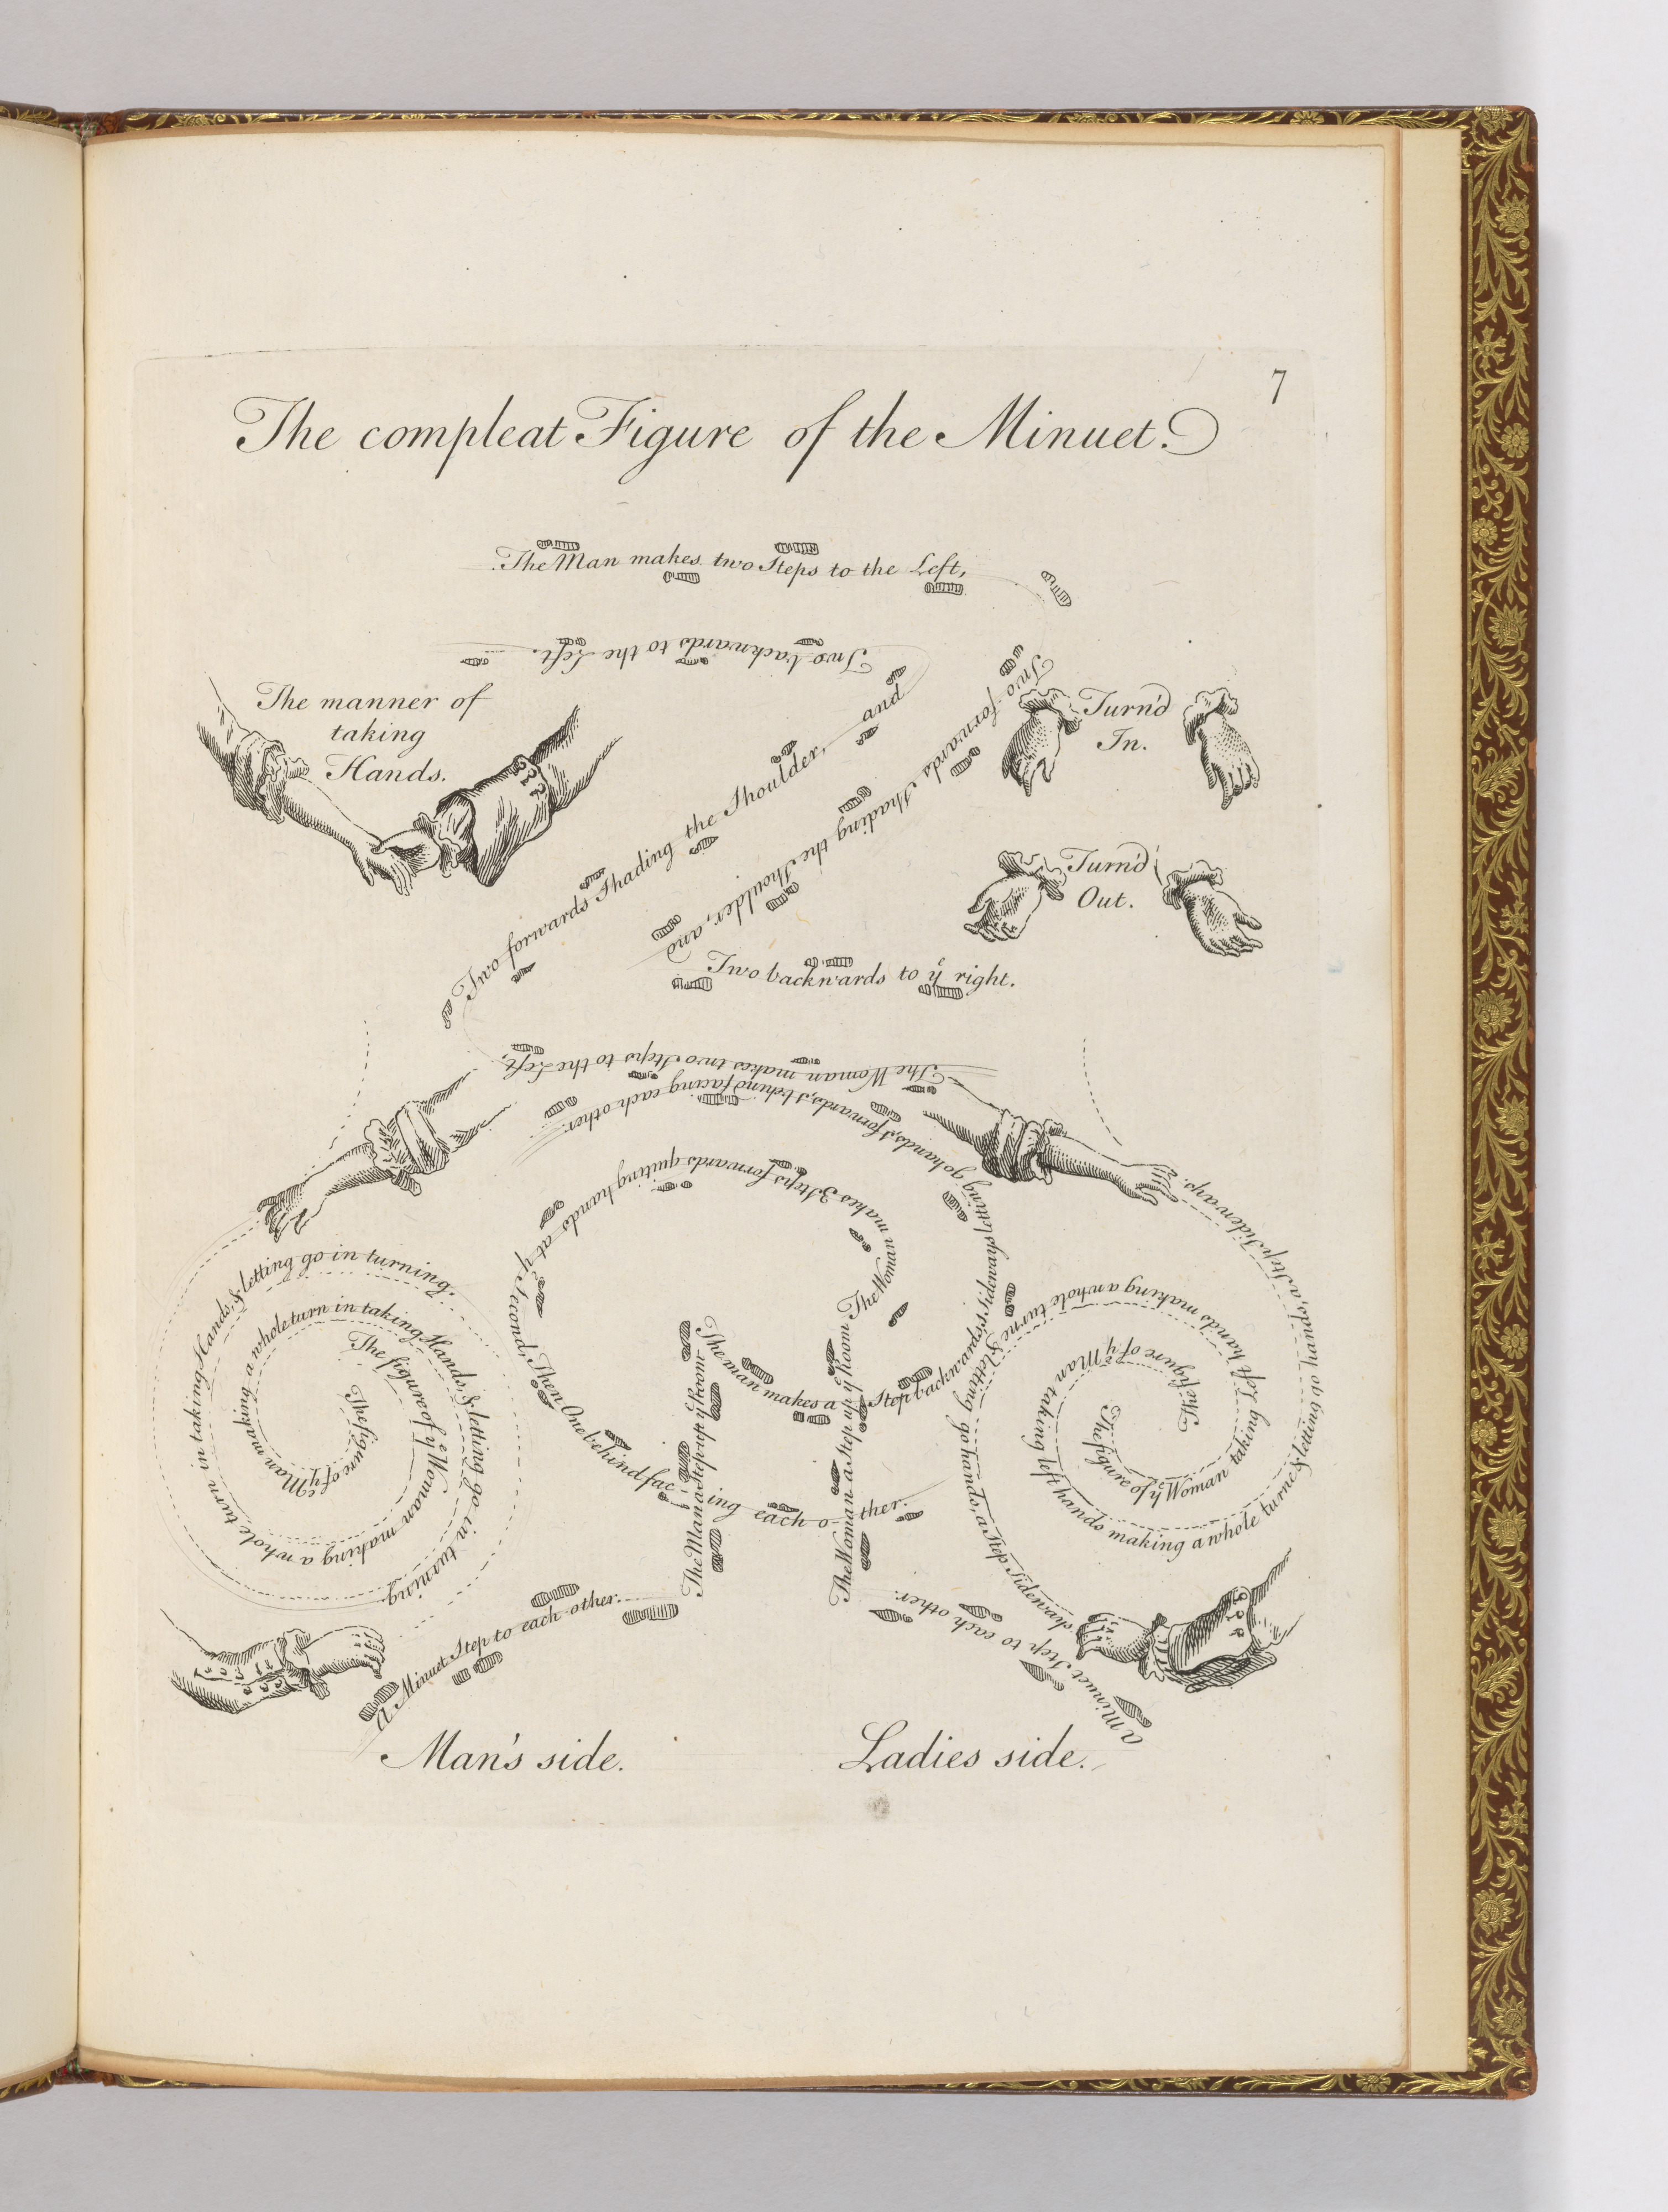 7
The compleat Figure of the Minuet.
The Man makes two Steps to the Left,
Two forwards Shading the Shoulder, and
Two backwards to yͤ right.
The Woman makes two Steps to the Left,
Two forwards Shading the Shoulder, and
Two backwards to the Left.
The manner of
taking
Hands.
Turn'd
In.
Turn'd
Out.
The figure of yͤ Man making a whole turn in taking Hands, & letting go in turning.
The figure of yͤ Woman making a whole turn in taking Hands, & letting go in turning.
The Woman makes 3 Steps forwards quiting hands at yͤ Second, Then One behind facing each o-ther.
The man makes a Step backwards, 1 Sideways letting go hands, 1 forwards, 1 behind facing each other.
The Man a Step up yͤ Room
The Woman a Step up yͤ Room
The figure of yͤ Man taking left hands making a whole turne & letting go hands, a Step Sideways.
The figure of yͤ Woman taking left hands making a whole turne & letting go hands, a Step Sideways.
A Minuet Step to each other.
a Minuet Step to each other.
Man's side.
Ladies side.